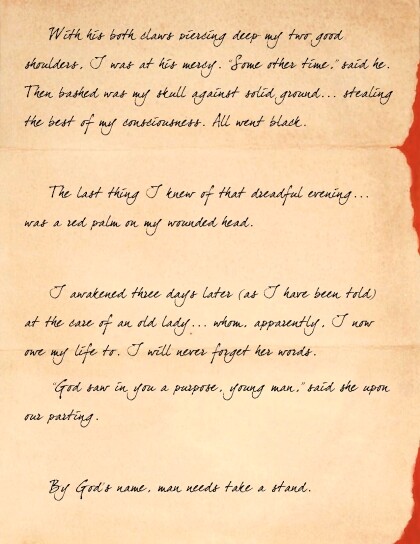 With his both claws piercing deep my two good
shoulders, I was at his mercy. "Some other time," said he.
Then bashed was my skull against solid ground... stealing
the best of my consciousness. All went black.
The last thing I knew of that dreadful evening...
was a red palm on my wounded head.
I awakened three days later (as I have been told)
at the care of an old lady... whom, apparently, I now
owe my life to. I will never forget her words.
"God saw in you a purpose, young man," said she upon
our parting.
By God's name, man needs take a stand.